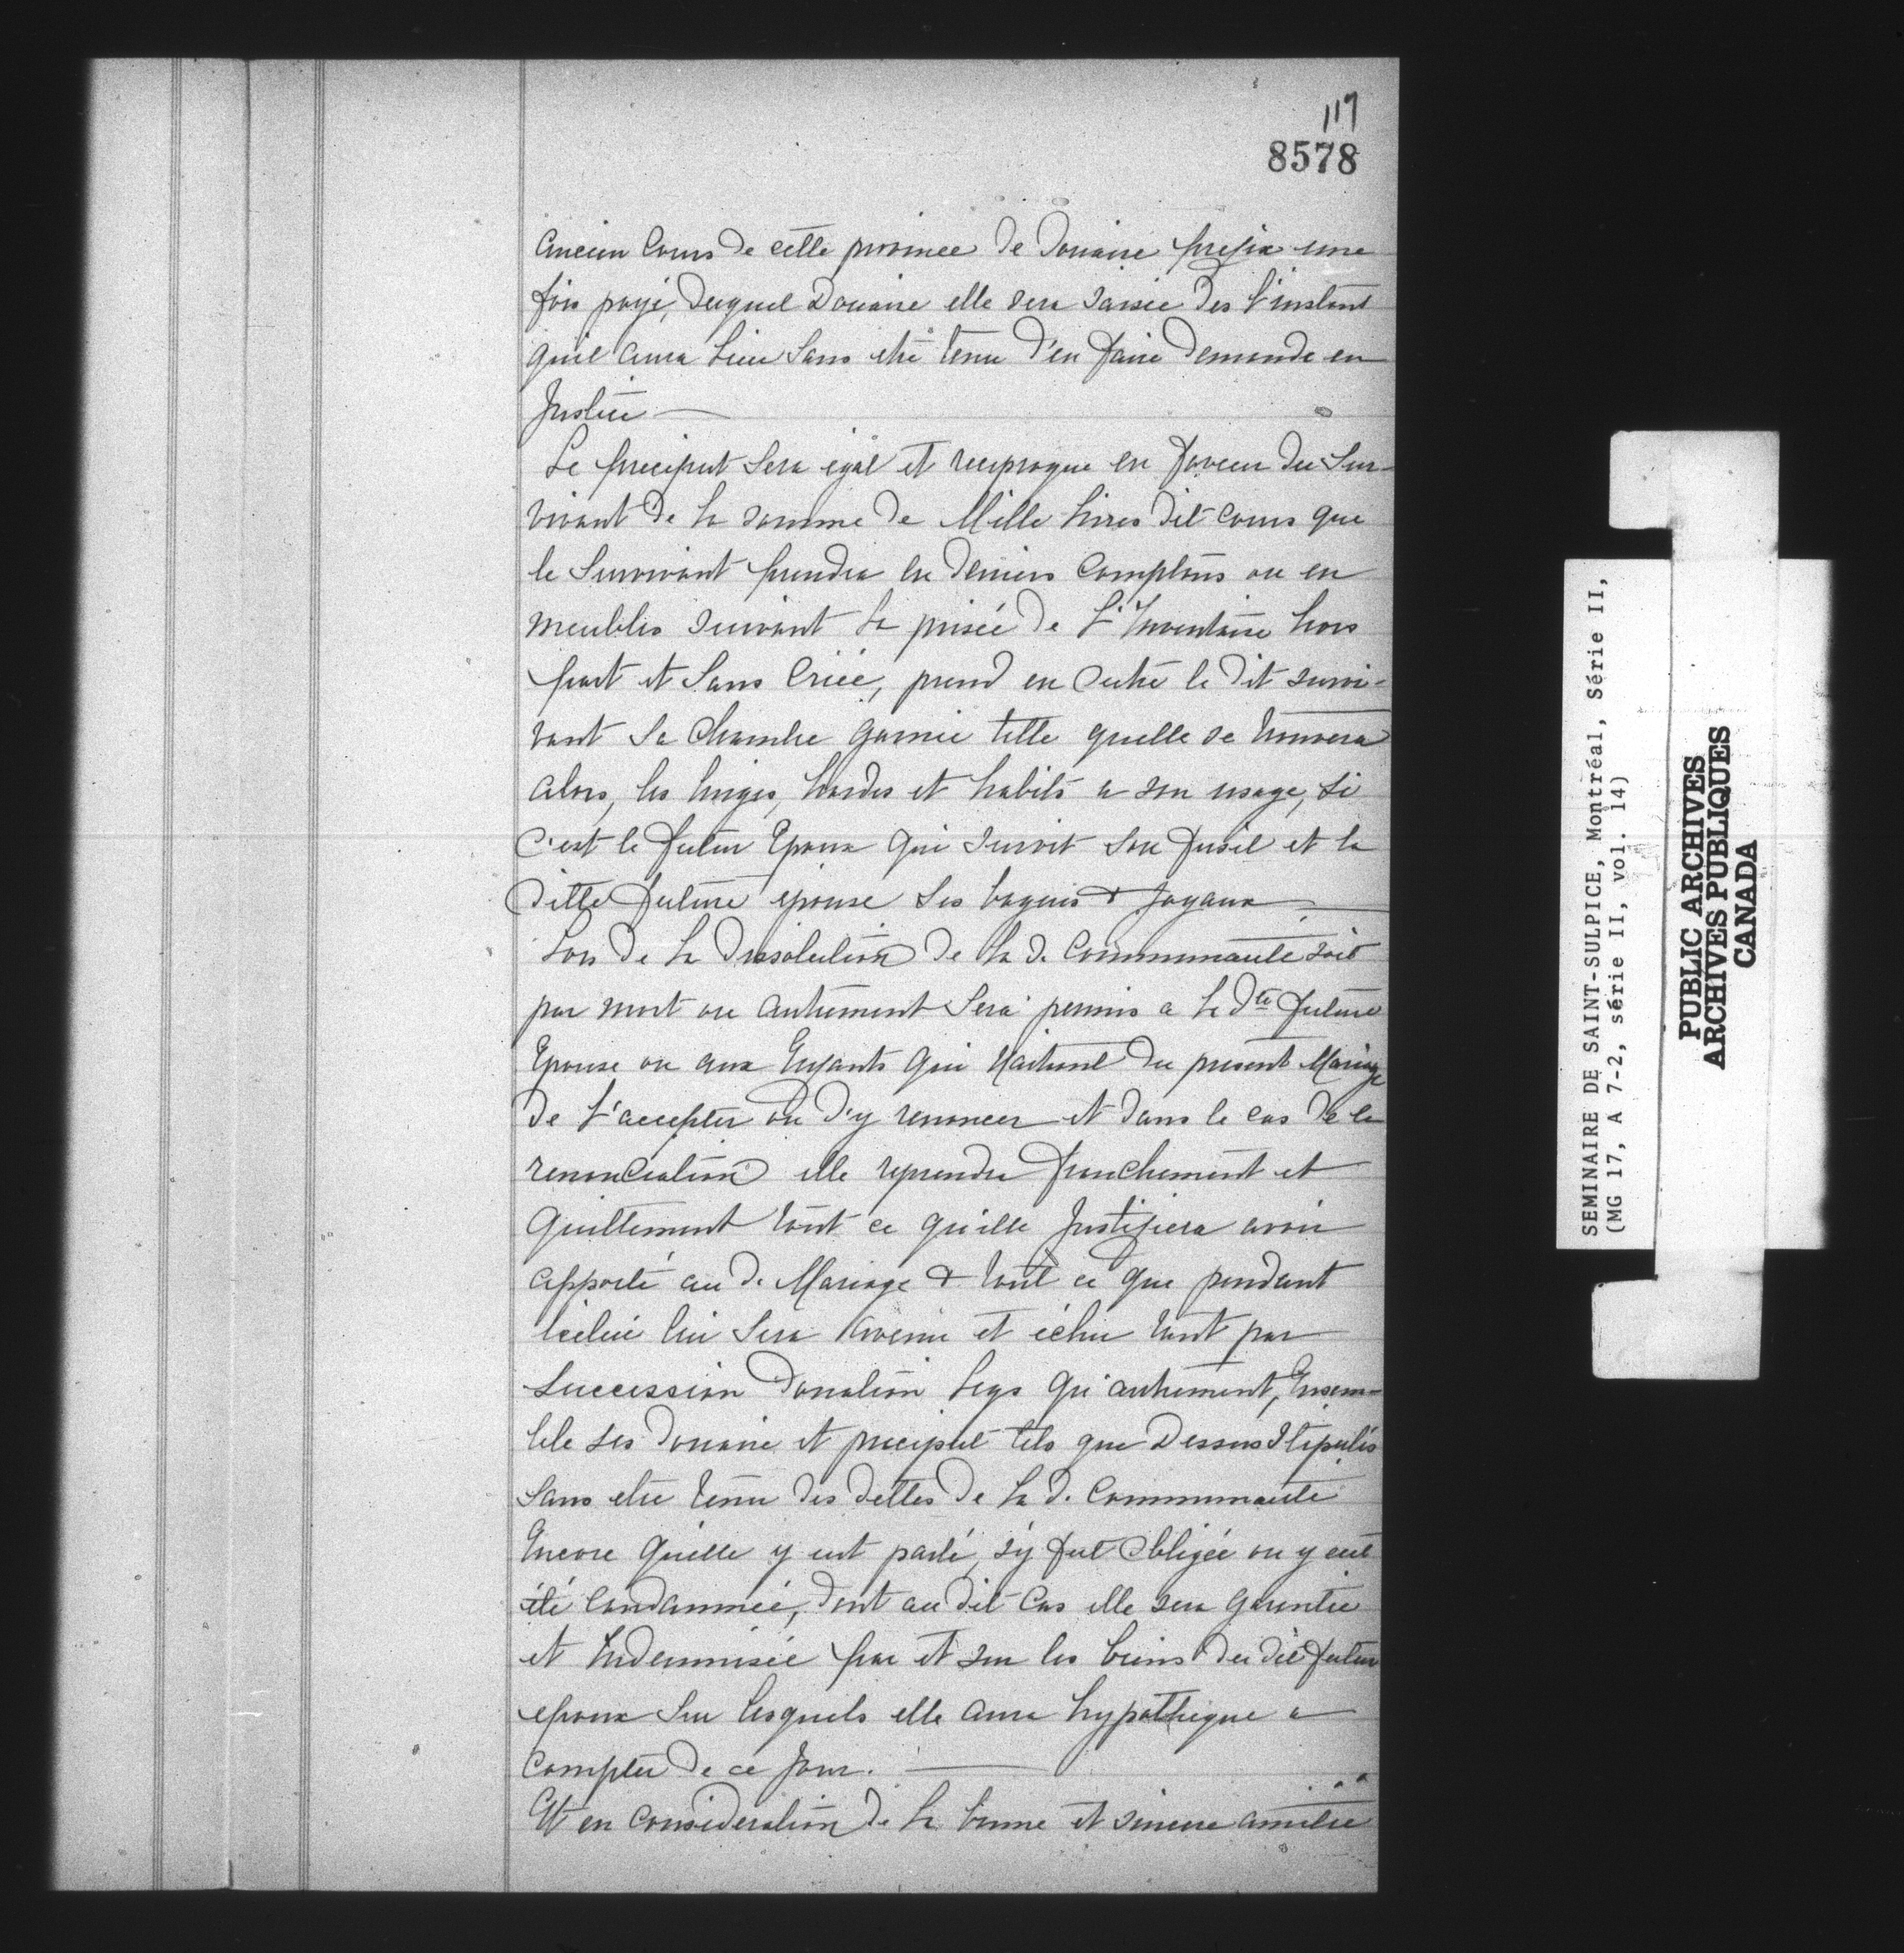 117
8578
ancien Cours de cette province de Douaire prefix une
fois payé, duquel Douaire elle sera saisie des l'instant
quil aura Lieu Sans etre tenu d'en faire demande en
Justice
Le preciput Sera égal et reciproque en faveur du Sur-
vivant de la somme de Mille livres dit cours que
le Survivant prendra en deniers comptans ou en
meubles suivant la prisée de l'Inventaire hors
part et Sans Criée, prend en outre le dit survi-
vant Sa Chambre garnie telle quelle se trouvera
alors, les linges, hardes et habits a son usage, Si
c'est le futur Epoux qui survit son fusil et la
ditte future epouse Ses bagues & Joyaux
Lors de la dissolution de la d. Communauté soit
par mort ou autrement Sera permis a la dte future
Epouse ou aux Enfants qui naitront du present Mariage
de l'accepter ou d'y renoncer et dans le cas de la
renonciation elle reprendra franchement et
quittement tout ce quelle Justifiera avoir
apporté au d. Mariage & tout ce que pendant
icelui lui Sera avenu et échu tant par
Succession Donation Legs qu'autrement, Ensem-
ble ses Douaire et preciput tels que Dessus Stipulés
Sans etre tenu des dettes de la d. Communauté
Encore quelle y eut parlé, s'y fut obligée ou y eut
été Condamnée, dont au dit Cas elle sera garentie
et Indemnisée par et sur les biens du dit futur
epoux Sur lesquels elle aura hypothèque a
compter de ce Jour.
Et en consideration de la bonne et sincere amitié
SEMINAIRE DE SAINT-SULPICE, Montréal, Série II,
(MG 17, A 7-2, série II, vol. 14)
PUBLIC ARCHIVES
ARCHIVES PUBLIQUES
CANADA